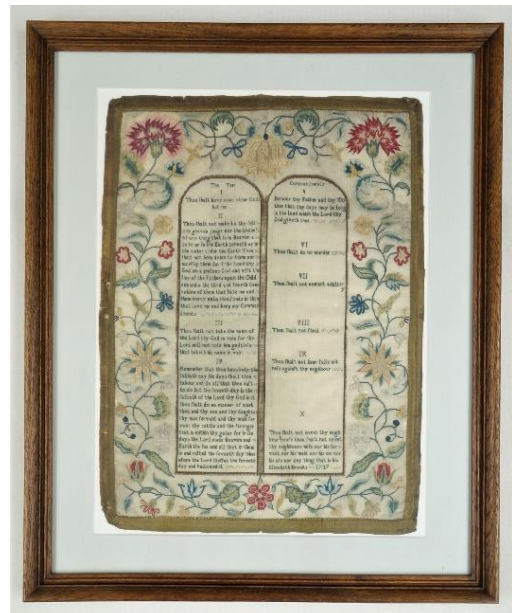 The Ten
I
Thou shalt have none other Gods
but me
II
Thou shalt not make to thy self
any graven image nor the
of any thing that is in Heaven
or in the Earth beneath or in
the water under the Earth Thou
shalt not bow down to them nor
worship them for I the Lord thy
God am a jealous God and visit the
sins of the Fathers upon the Child
unto the third and fourth Gene
ration of them that hate me and
shew mercy unto thousands in them
that love me and keep my Commandments
III
Thou shalt not take the name of
the Lord thy God in vain for the
Lord will not hold him guiltless
that taketh his name in vain
IV
Remember that thou keep holy the
Sabbath day Six days shalt thou
labour and do all that thou hast
to do but the seventh day is the
Sabbath of the Lord thy God in it
thou shalt do no manner of work
thou and thy son and thy daughter
thy man servant and thy maid ser
vant thy cattle and the stranger
that is within thy gates for in six
days the Lord made Heaven and
Earth the Sea and all that in them
is and rested the seventh day
wherefore the Lord blessed the seventh
day and hallowed it
Commandments
V
Honour thy Father and thy Mo
ther that thy days may be long
in the land which the Lord thy
God giveth thee
VI
Thou shalt do no murder
VII
Thou shalt not commit adulter
y
VIII
Thou shalt not steal
IX
Thou shalt not bear false wit
ness against thy neighbour
X
Thou shalt not covet thy neigh
bour's house thou shalt not covet
thy neighbours wife nor his ser
vant nor his maid nor his ox nor
his ass nor any thing that is his
Elizabeth Brooks 1737